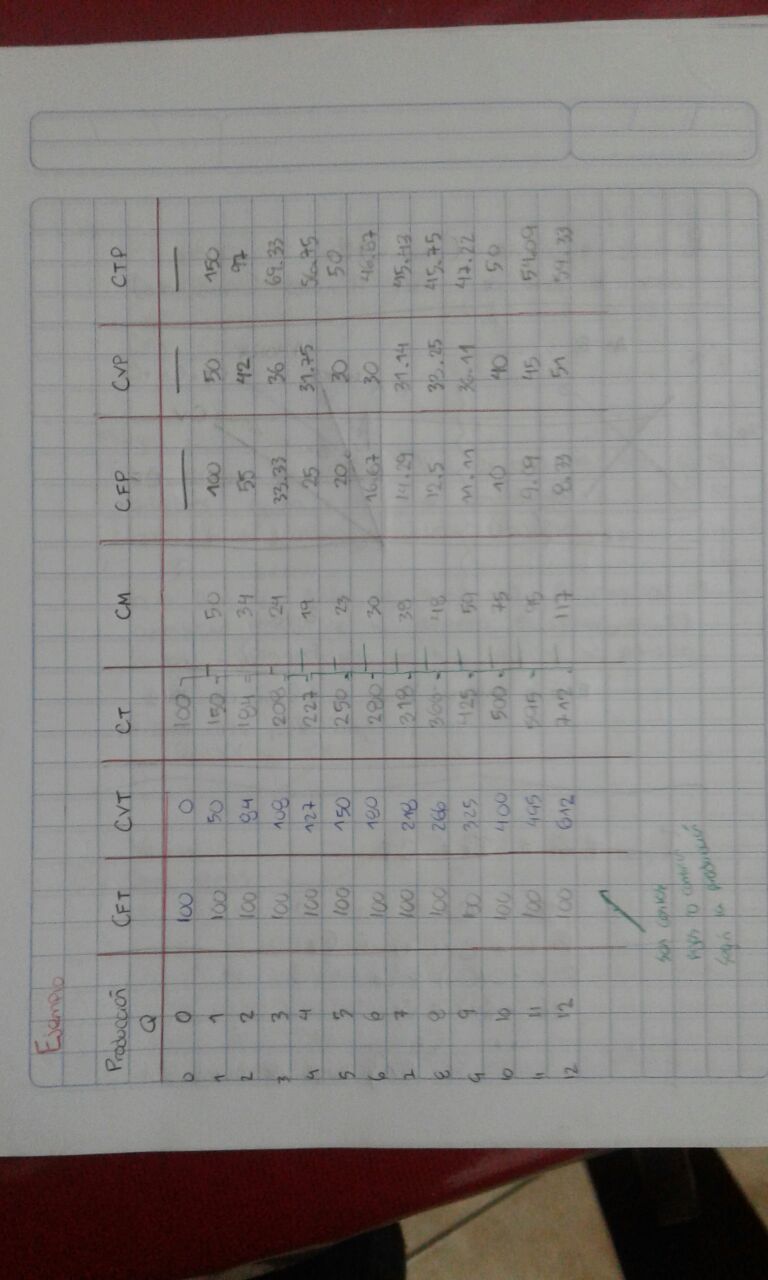 Ejemplo
Producción CFT CVT CT CM CFP CVP CTP
Q
0 0 100 0 100 — — —
1 1 100 50 150 50 100 50 150
2 2 100 84 184 34 55 42 97
3 3 100 108 208 24 33.33 36 69.33
4 4 100 127 227 19 25 31.75 56.75
5 5 100 150 250 23 20 30 50
6 6 100 180 280 30 16.67 30 46.67
7 7 100 218 318 38 14.29 31.14 45.43
8 8 100 266 366 48 12.5 33.25 45.75
9 9 100 325 425 59 11.11 36.11 47.22
10 10 100 400 500 75 10 40 50
11 11 100 495 595 95 9.09 45 54.09
12 12 100 612 712 117 8.33 51 59.33
Son
producción